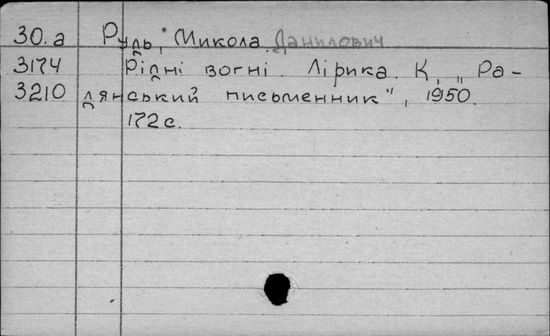 30.а Рудь, Микола Данилович
3174 Рідні вогні. Лірика. К., „Ра-
3210 дянський письменник", 1950.
172 с.